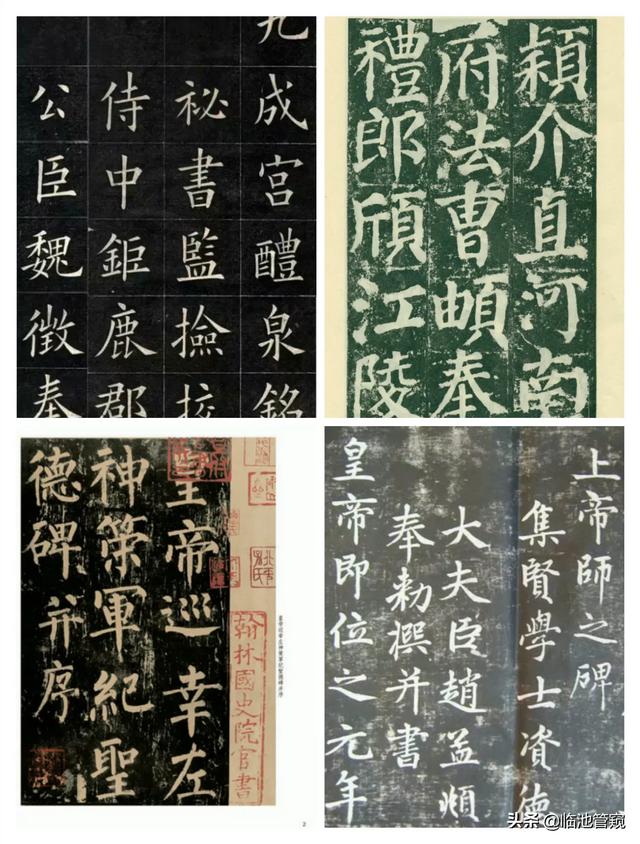 九成宮醴泉銘
祕書監撿挍
侍中鉅鹿郡
公臣魏徵奉
穎介直河南
府法曹頔奉
禮郎頎江陵
皇帝巡幸左
神策軍紀聖
德碑并序
翰林國史院官書
皇帝巡幸左神策軍紀聖德碑并序
2
上帝師之碑
集賢學士資德
大夫臣趙孟頫
奉勅撰并書
皇帝即位之元年
头条 @临池管窥